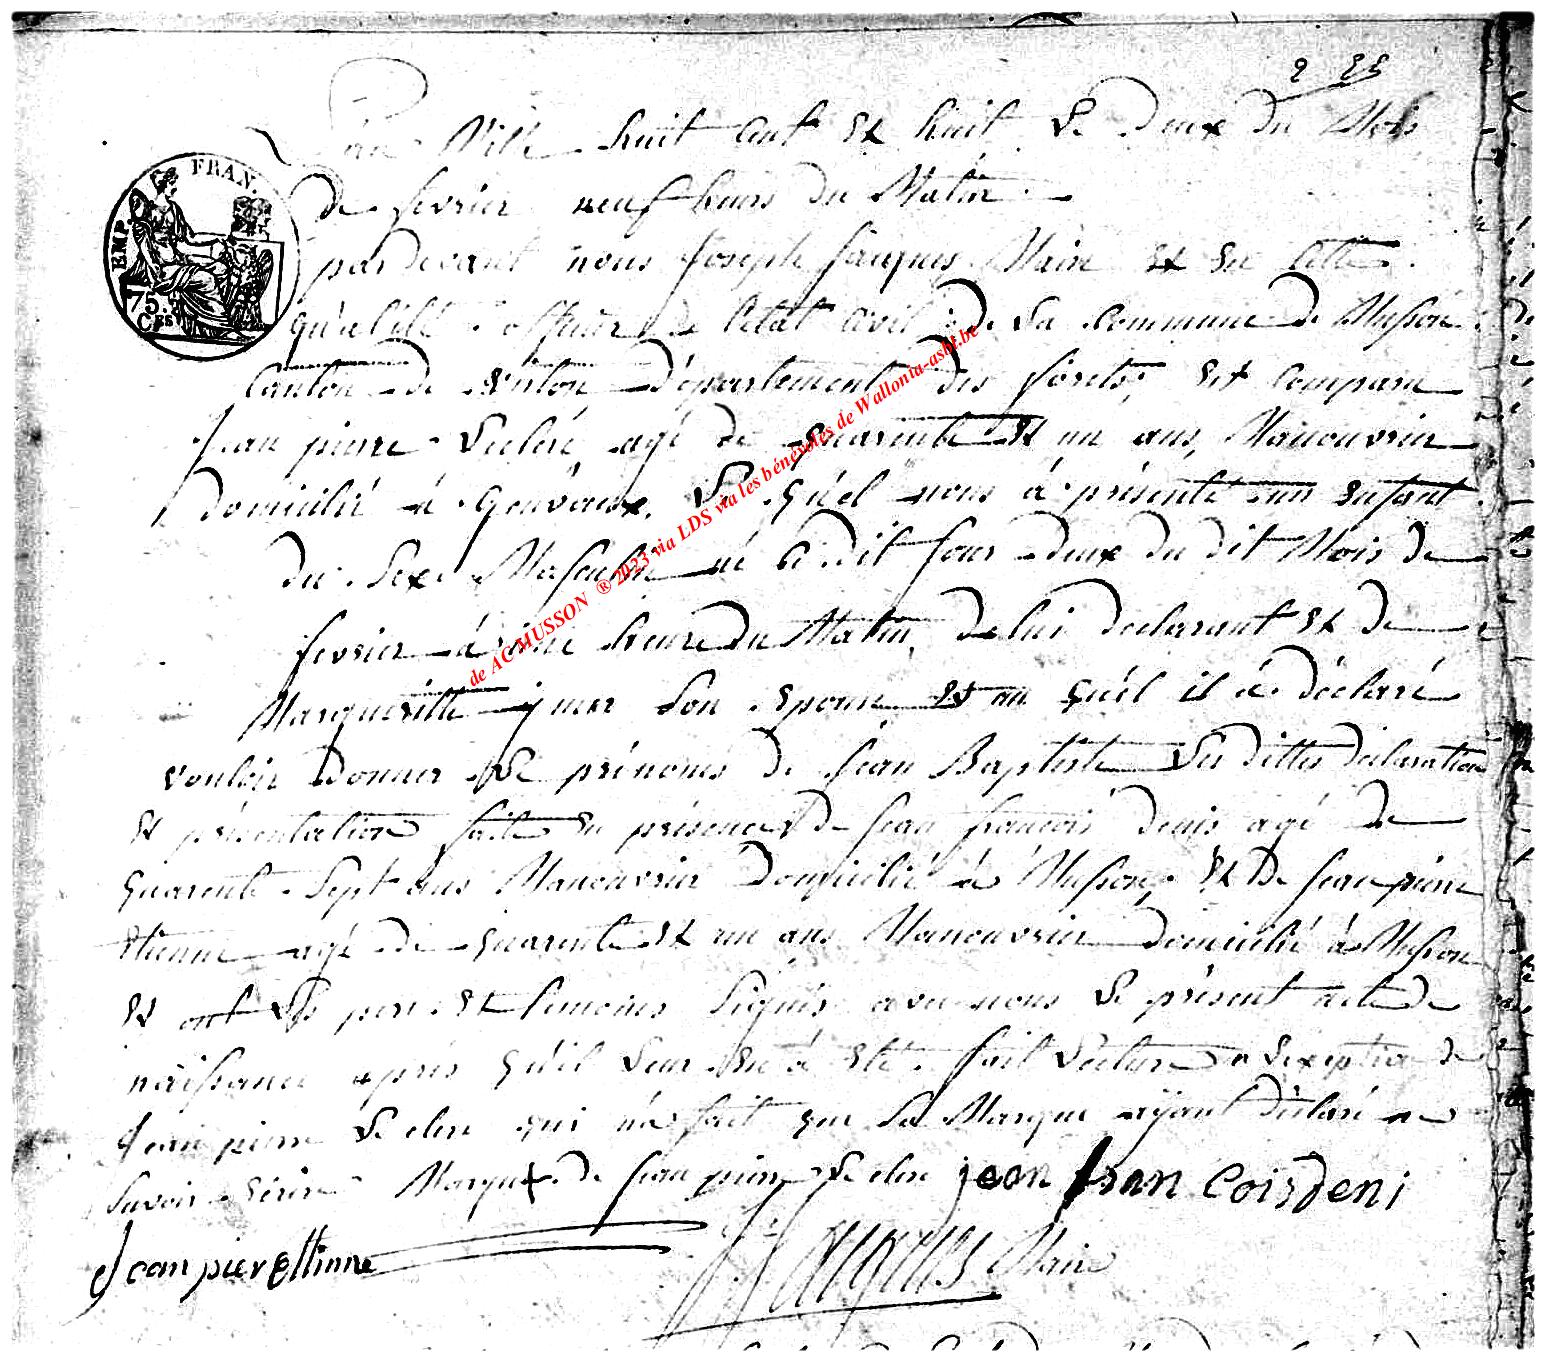 2 25
L'an Mille huit Cent Et huit Le Deux Du Mois
De fevrier neuf heurs Du Matin
EMP. FRAN.
75.
CES
pardevant nous Joseph Jacques Maire Et En Cette
qualité officier De l'état Civil De La Commune De Musson
Canton De Virton Département Des forets, Est Comparu
Jean pierre Leclere agé De quarente Et un ans, Manouvrier
Domicilié à Gouveaux, Le quel nous á présenté un Enfant
du Sexe Masculin né Ce dit Jour deux du dit Mois De
fevrier à une heure Du Matin, De lui declarant Et De
Margueritte son Epouse Et au quél il á Déclaré
vouloir Donner Le prénoms De Jean Baptiste Les dittes déclaration
Et présentation faite En présence De Jean françois denis agé De
quarente Sept ans Manouvrier Domicilié à Musson, Et De Jean pierre
Etienne agé De quarente Et un ans Manouvrier Domicilié à Musson
Et ont Les pere Et temoins Signés avec nous Le présent acte De
naissance après qu'il Leur En á Eté fait Lecture a L'exeption De
Jean pierre Leclere qui n'a fait que Sa Marque ayant Déclaré ne
Savoir Ecrire Marque X De Jean pierre Leclere jean fran Coisdeni
Jean pier Ettinne J. Jacques Maire
de AC MUSSON ® 2023 via LDS via les bénévoles de Wallonia-asbl.be